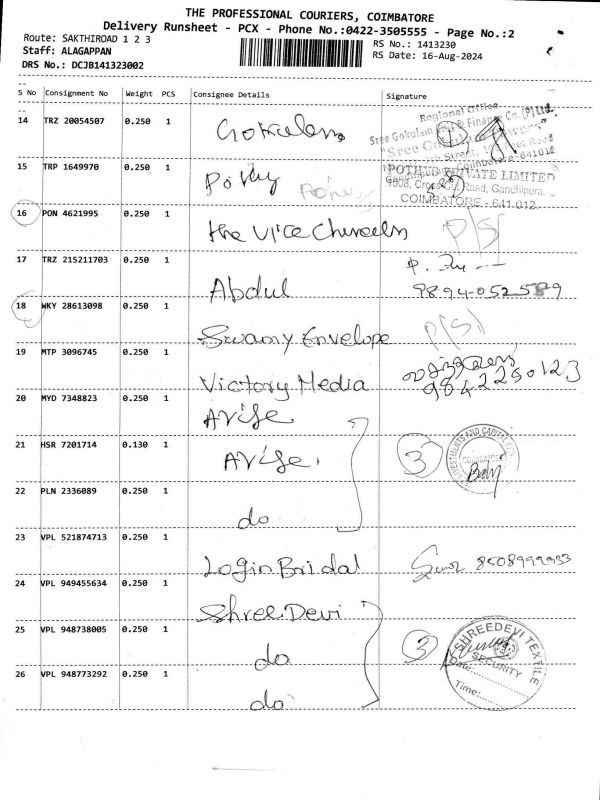 THE PROFESSIONAL COURIERS, COIMBATORE
Delivery Runsheet - PCX - Phone No.:0422-3505555 - Page No.:2
Route: SAKTHIROAD 1 2 3
Staff: ALAGAPPAN
DRS No.: DCJB141323002
RS No.: 1413230
RS Date: 16-Aug-2024
S No Consignment No Weight PCS Consignee Details Signature
14 TRZ 20054507 0.250 1 Gokulam
Regional Office
Sree Gokulam & Finance Co.(P)Ltd.
"Sree Gokulam
Street,
Coimbatore-641012
15 TRP 1649970 0.250 1 Pothy
POTHYS PRIVATE LIMITED
Road, Gandhipuram
COIMBATORE - 641 012
16 PON 4621995 0.250 1 the Vice P(S)
17 TRZ 215211703 0.250 1 Abdul
9894-052589
18 WKY 28613098 0.250 1 Swamy Envelope P(S)
19 MTP 3096745 0.250 1 Victory Media
9842250123
20 MYD 7348823 0.250 1
21 HSR 7201714 0.130 1 3
INVESTMENTS AND CAPITAL
COIMBATORE
22 PLN 2336089 0.250 1 do
23 VPL 521874713 0.250 1 Login Bridal 8508999933
24 VPL 949455634 0.250 1 Shree Devi
25 VPL 948738005 0.250 1 do 3
SHREEDEVI TEXTILE
SECURITY
Date:
Time:
26 VPL 948773292 0.250 1 do